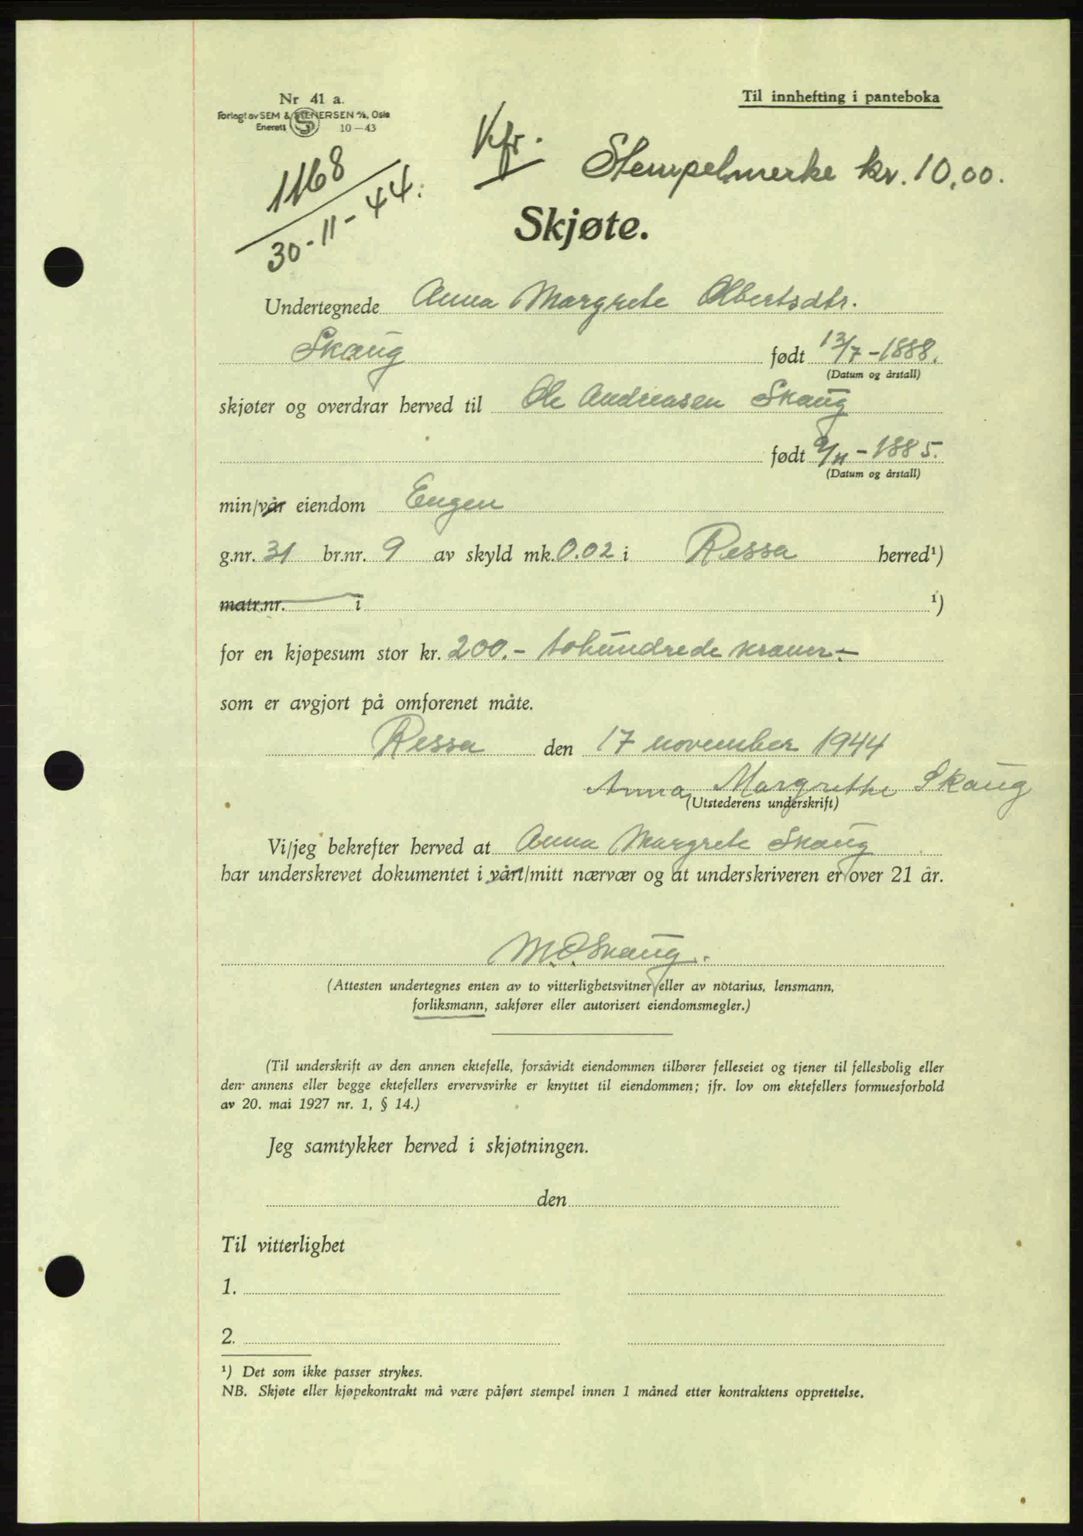 Nr 41 a.
Forlagt av SEM & STENERSEN A/S, Oslo
Enerett 10-43
Til innhefting i panteboka
1168
30-11-44.
Kfr.
Stempelmerke kr. 10,00.
Skjøte.
Undertegnede Anna Margrete Olbertsdtr.
Skaug født 13/7-1888.
(Datum og årstall)
skjøter og overdrar herved til Ole Andreasen Skaug
født 9/11-1885.
(Datum og årstall)
min/vår eiendom Engen
g.nr. 31 br.nr. 9 av skyld mk. 0.02 i Ressa herred¹)
matr.nr. i ¹)
for en kjøpesum stor kr. 200.- tohundrede kroner.-
som er avgjort på omforenet måte.
Ressa den 17 november 1944
Anna Margrethe Skaug
(Utstederens underskrift)
Vi/jeg bekrefter herved at Anna Margrete Skaug
har underskrevet dokumentet i vårt/mitt nærvær og at underskriveren er over 21 år.
M.O.Skaug.
(Attesten undertegnes enten av to vitterlighetsvitner eller av notarius, lensmann,
forliksmann, sakfører eller autorisert eiendomsmegler.)
(Til underskrift av den annen ektefelle, forsåvidt eiendommen tilhører felleseiet og tjener til fellesbolig eller
den annens eller begge ektefellers ervervsvirke er knyttet til eiendommen; jfr. lov om ektefellers formuesforhold
av 20. mai 1927 nr. 1, § 14.)
Jeg samtykker herved i skjøtningen.
den
Til vitterlighet
1.
2.
¹) Det som ikke passer strykes.
NB. Skjøte eller kjøpekontrakt må være påført stempel innen 1 måned etter kontraktens opprettelse.